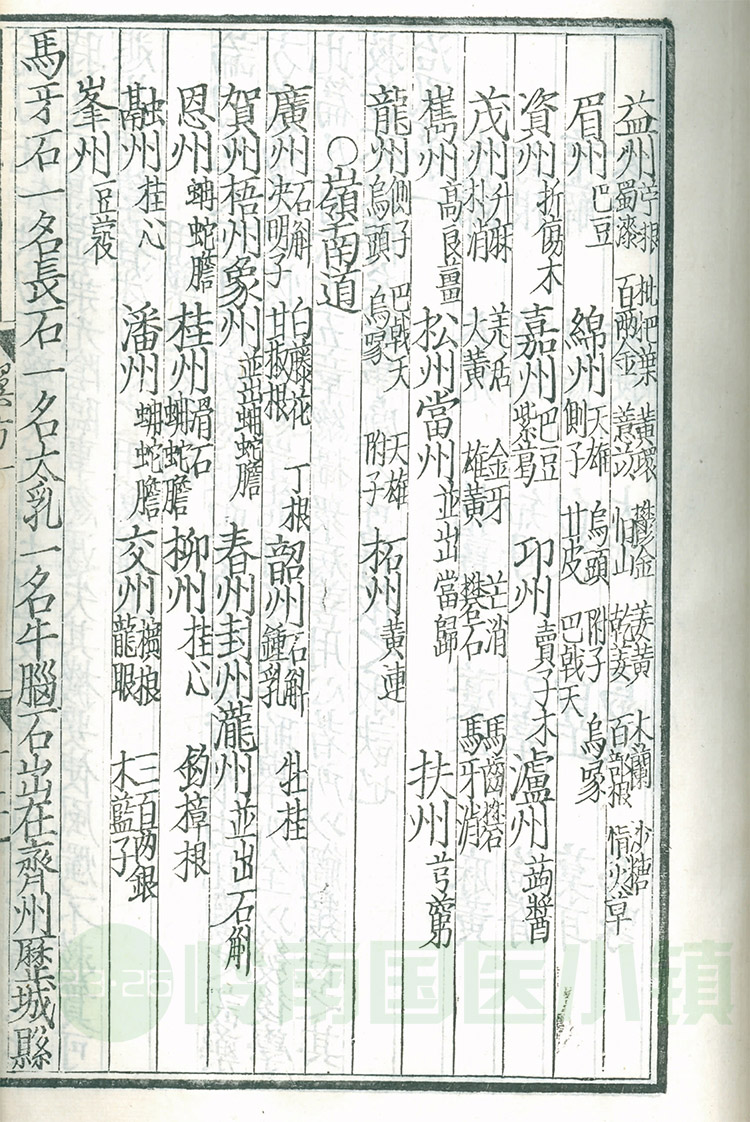 益州苧根 蜀漆 枇杷葉 百兩金 黃環 䕡茨 鬱金 恒山 姜黃 乾姜 木蘭 百部根 沙糖 情火草
眉州巴豆 綿州天雄 側子 烏頭 甘皮 附子 巴戟天 烏喙
資州折傷木 嘉州巴豆 紫葛 邛州賣子木 瀘州蒟醬
茂州升麻 朴消 羌活 大黃 金牙 雄黃 芒消 礬石 馬齒礬 馬牙消
巂州高良薑 松州當州並出當歸 扶州芎藭
龍州側子 烏頭 巴戟天 烏喙 天雄 附子 柘州黃連
○嶺南道
廣州石斛 決明子 白藤花 甘椒根 丁根 韶州石斛 鍾乳 牡桂
賀州梧州象州並出蚺蛇膽 春州封州瀧州並出石斛
恩州蚺蛇膽 桂州滑石 蚺蛇膽 柳州桂心 釣樟根
融州桂心 潘州蚺蛇膽 交州檳榔 龍眼 三百两銀 木藍子
峯州豆蔻
馬牙石一名長石一名大乳一名牛腦石出在齊州歷城縣
嶺南国医小镇